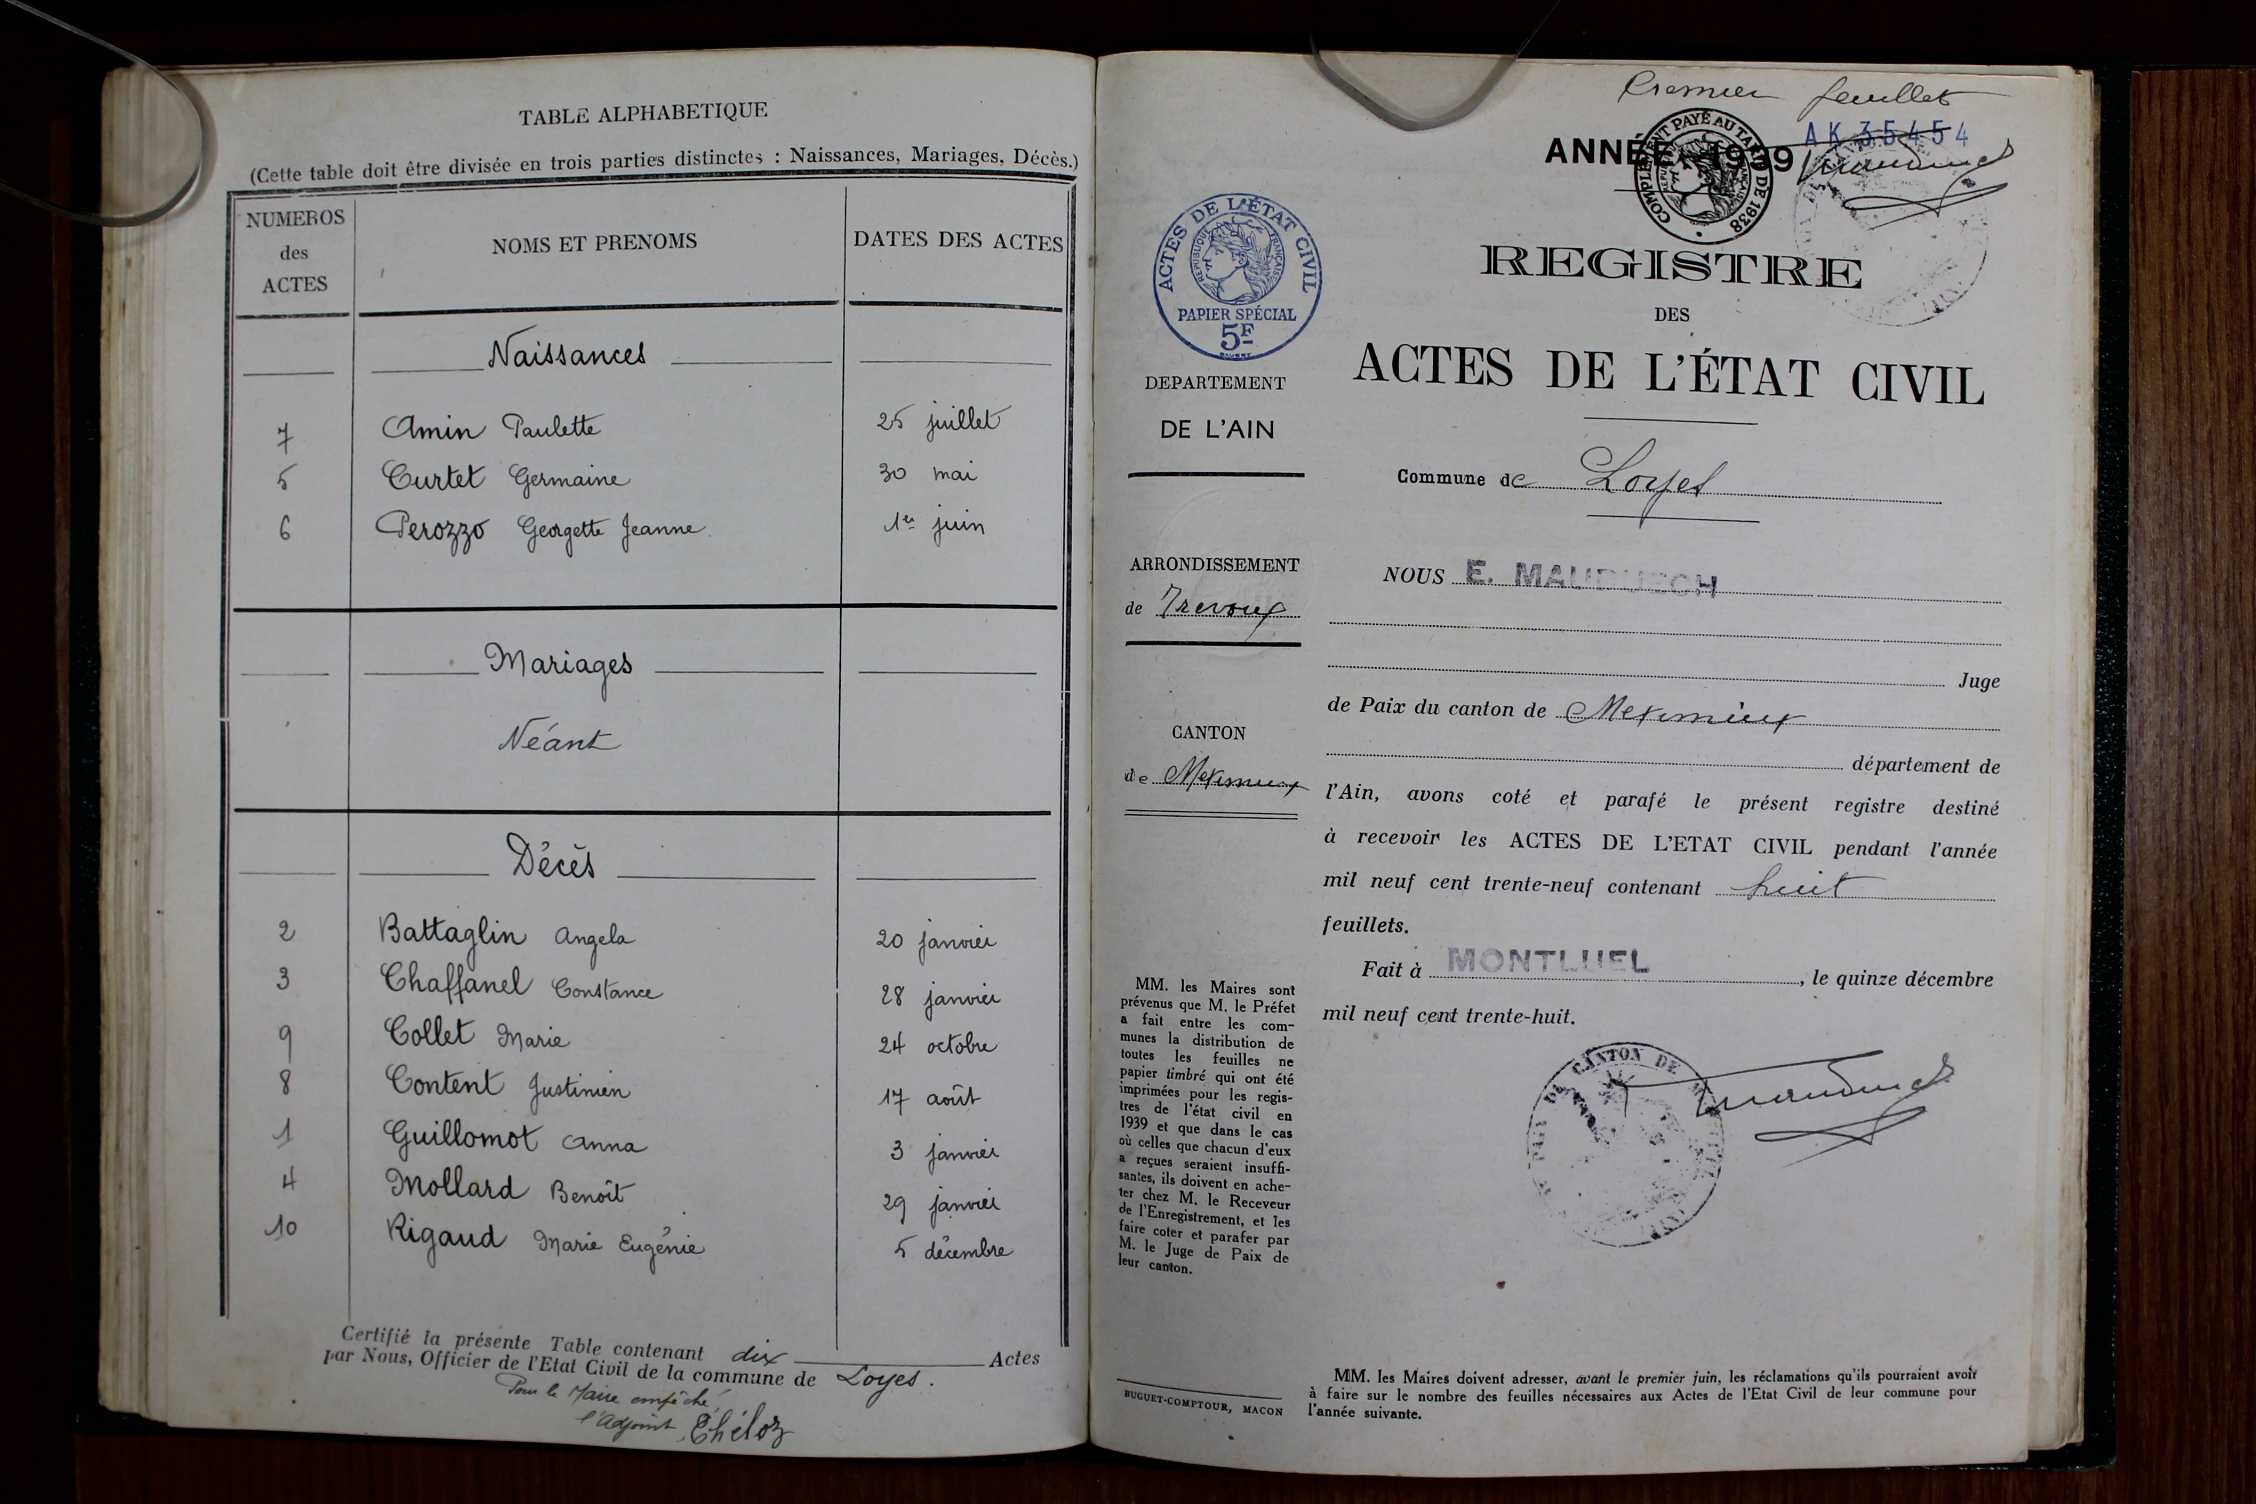 TABLE ALPHABETIQUE
(Cette table doit être divisée en trois parties distinctes : Naissances, Mariages, Décès.)
NUMEROS des ACTES NOMS ET PRENOMS DATES DES ACTES
Naissances
7 Amin Paulette 25 juillet
5 Curtet Germaine 30 mai
6 Perozzo Georgette Jeanne 1er juin
Mariages
Néant
Décès
2 Battaglin Angela 20 janvier
3 Chaffanel Constance 28 janvier
9 Collet Marie 24 octobre
8 Content Justinien 17 août
1 Guillomot Anna 3 janvier
4 Mollard Benoît 29 janvier
10 Rigaud Marie Eugénie 5 décembre
Certifié la présente Table contenant dix Actes
par Nous, Officier de l'Etat Civil de la commune de Loyes.
Pour le Maire empêché,
l'Adjoint, Théloz
Premier feuillet
AK 35454
ANNÉE 1939
COMPLEMENT PAYÉ AU TARIF DE 1938
ACTES DE L'ÉTAT CIVIL
RÉPUBLIQUE FRANÇAISE
PAPIER SPÉCIAL
5F
DEPARTEMENT
DE L'AIN
ARRONDISSEMENT
de Trevoux
CANTON
de Meximieux
MM. les Maires sont
prévenus que M. le Préfet
a fait entre les com-
munes la distribution de
toutes les feuilles ne
papier timbré qui ont été
imprimées pour les regis-
tres de l'état civil en
1939 et que dans le cas
où celles que chacun d'eux
a reçues seraient insuffi-
santes, ils doivent en ache-
ter chez M. le Receveur
de l'Enregistrement, et les
faire coter et parafer par
M. le Juge de Paix de
leur canton.
BUGUET-COMPTOUR, MACON
REGISTRE
DES
ACTES DE L'ÉTAT CIVIL
Commune de Loyes
NOUS E. MAUDUECH
Juge
de Paix du canton de Meximieux
département de
l'Ain, avons coté et parafé le présent registre destiné
à recevoir les ACTES DE L'ETAT CIVIL pendant l'année
mil neuf cent trente-neuf contenant huit
feuillets.
Fait à MONTLUEL, le quinze décembre
mil neuf cent trente-huit.
CANTON DE
MM. les Maires doivent adresser, avant le premier juin, les réclamations qu'ils pourraient avoir
à faire sur le nombre des feuilles nécessaires aux Actes de l'Etat Civil de leur commune pour
l'année suivante.